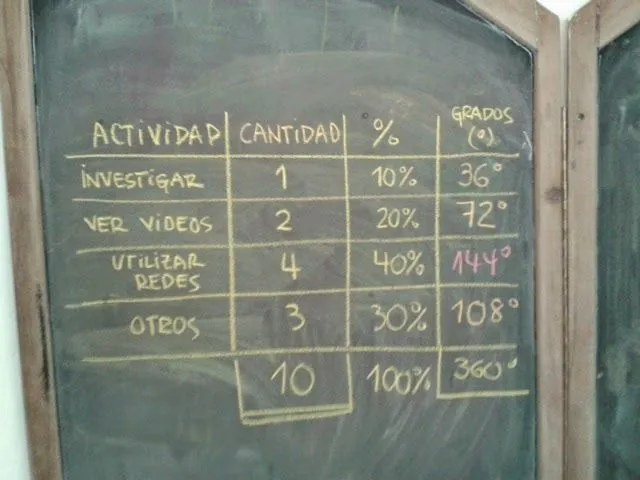 ACTIVIDAD CANTIDAD % GRADOS (°)
INVESTIGAR 1 10% 36°
VER VIDEOS 2 20% 72°
UTILIZAR REDES 4 40% 144°
OTROS 3 30% 108°
10 100% 360°